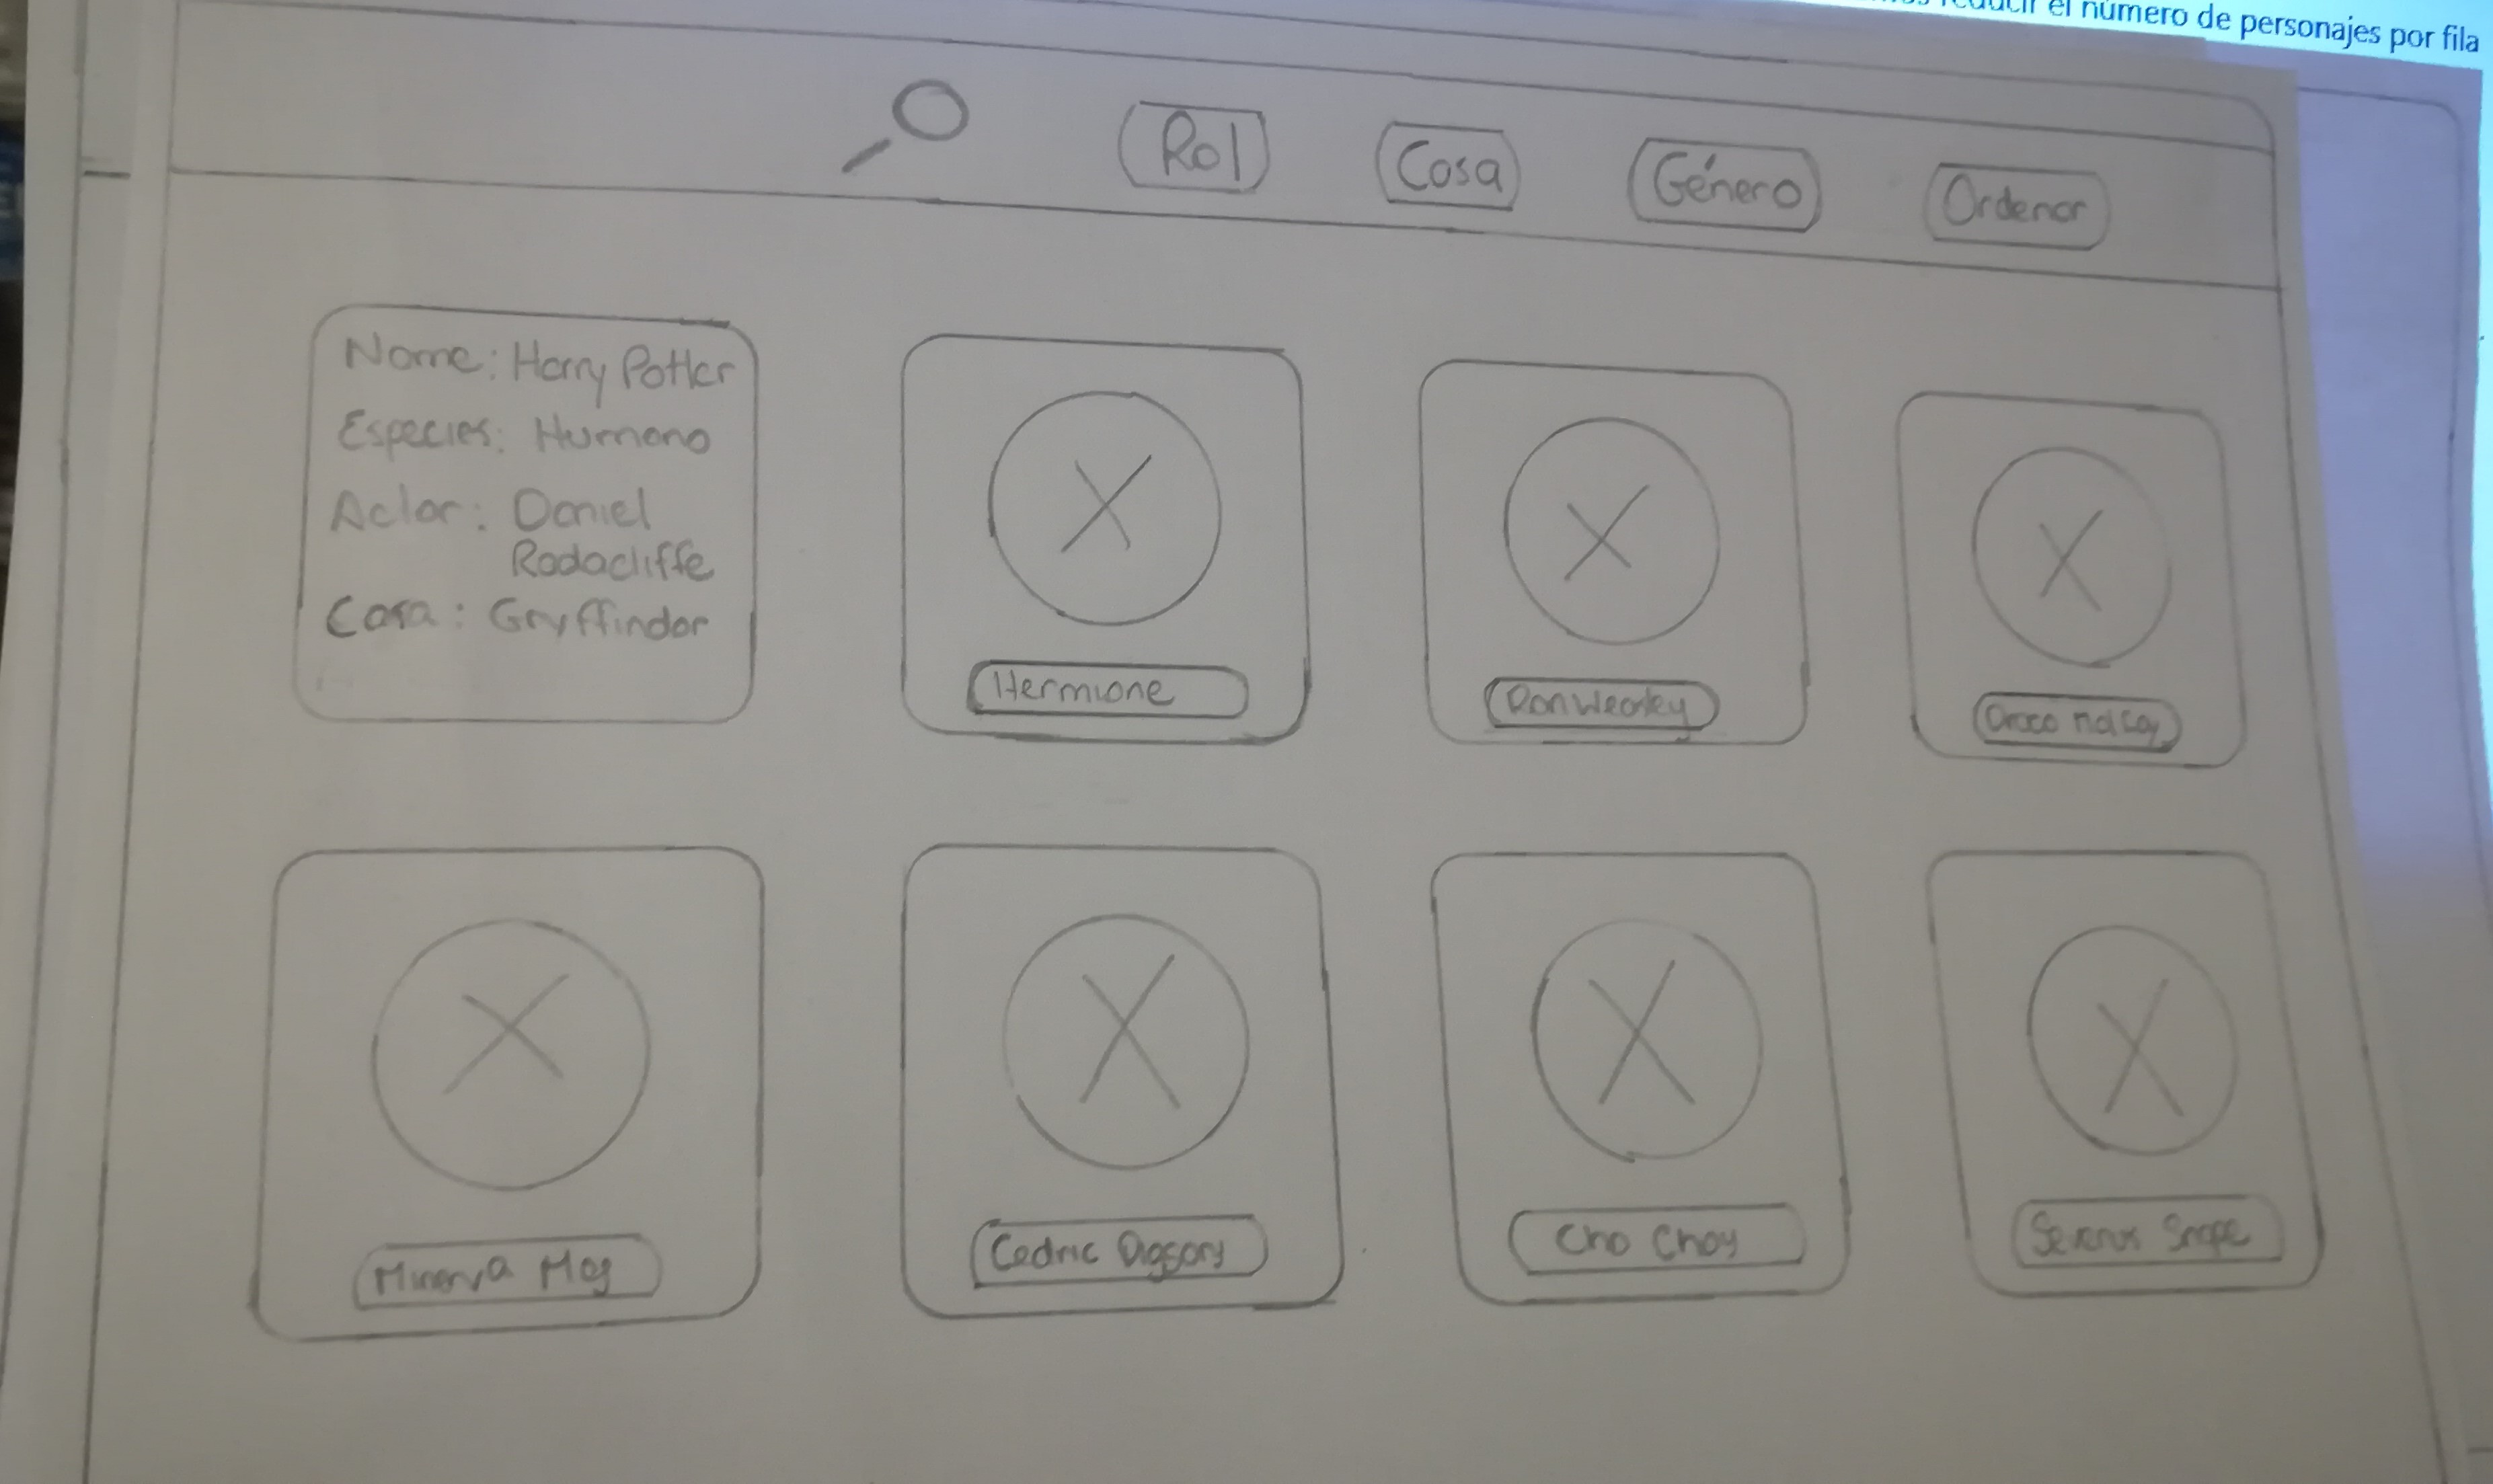 reducir el número de personajes por fila
Rol
Casa
Género
Ordenar
Nome: Harry Potter
Especies: Humano
Actor: Daniel
Radacliffe
Casa: Gryffindor
Hermione
Ron Weasley
Draco Malfoy
Minerva Mcg
Cedric Digsory
Cho Chay
Severus Snape